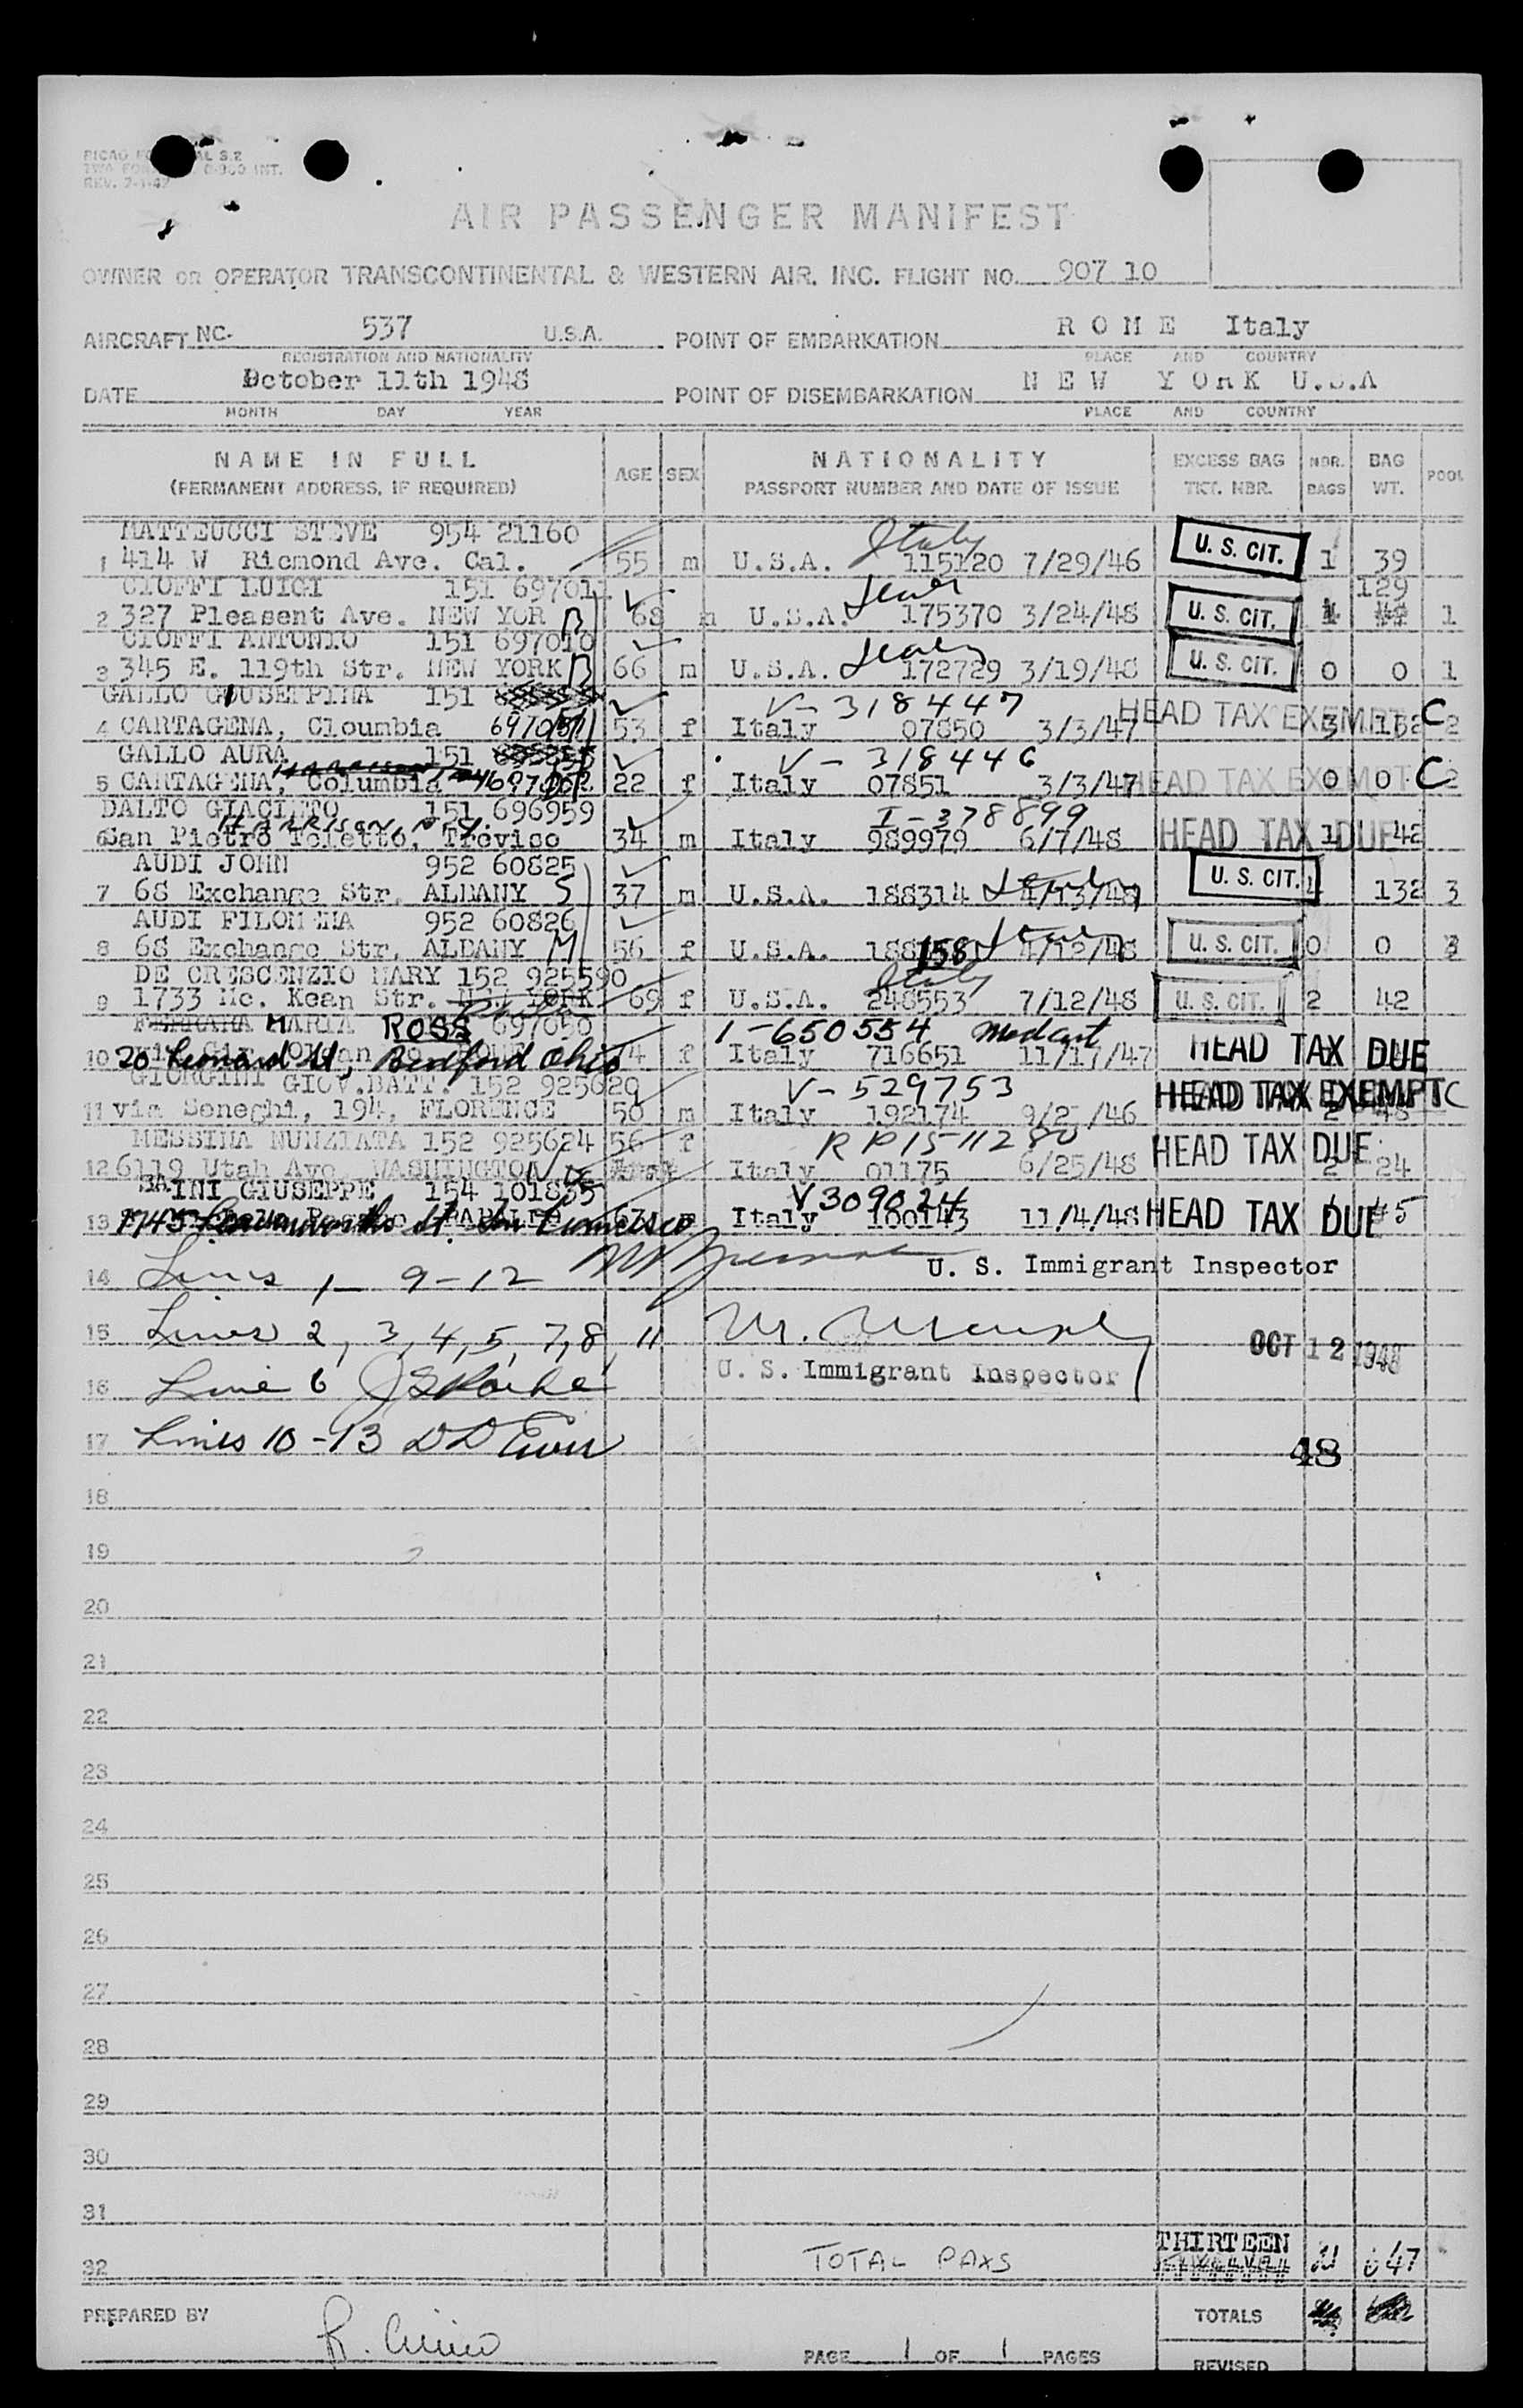 REV. 7-1-47
AIR PASSENGER MANIFEST
OWNER OR OPERATOR TRANSCONTINENTAL & WESTERN AIR, INC. FLIGHT NO. 907 10
AIRCRAFT NC- 537 U.S.A. POINT OF EMBARKATION R O M E Italy
REGISTRATION AND NATIONALITY PLACE AND COUNTRY
DATE October 11th 1948 POINT OF DISEMBARKATION N E W Y O R K U.S.A
MONTH DAY YEAR PLACE AND COUNTRY
NAME IN FULL AGE SEX NATIONALITY EXCESS BAG NBR. BAG POOL
(PERMANENT ADDRESS, IF REQUIRED) PASSPORT NUMBER AND DATE OF ISSUE TKT. NBR. BAGS WT.
MATTEUCCI STEVE 954 21160 Italy
1 414 W Ricmond Ave. Cal. 55 m U.S.A. 115120 7/29/46 U. S. CIT. 1 39
CIOFFI LUIGI 151 697011 129
2 327 Pleasent Ave. NEW YOR 68 m U.S.A. 175370 3/24/48 U. S. CIT. 1
CIOFFI ANTONIO 151 697010
3 345 E. 119th Str. NEW YORK 66 m U.S.A. 172729 3/19/48 U. S. CIT. 0 0 1
GALLO GIUSEPPINA 151 V-318447
4 CARTAGENA, Cloumbia 53 f Italy 07850 3/3/47 HEAD TAX EXEMPT 3 C 2
GALLO AURA 151 V-318446
5 CARTAGENA, Columbia 22 f Italy 07851 3/3/47 HEAD TAX EXEMPT 0 0 C 2
DALTO GIACINTO 151 696959 I-378899
HARRISON, N.Y.
6 San Pietro Teletto, Treviso 34 m Italy 989979 6/7/48 HEAD TAX DUE 1 42
AUDI JOHN 952 60825
7 68 Exchange Str. ALBANY S 37 m U.S.A. 188314 4/13/48 U. S. CIT. 132 3
AUDI FILOMENA 952 60826
8 68 Exchange Str. ALBANY M 56 f U.S.A. 188158 4/12/48 U. S. CIT. 0 0 3
DE CRESCENZIO MARY 152 925590 Italy
9 1733 Mc. Kean Str. NEW YORK 69 f U.S.A. 248553 7/12/48 U. S. CIT. 2 42
MARIA ROSS 697050 1-650554
10 20 Leonard St, Bedford Ohio f Italy 716651 11/17/47 HEAD TAX DUE
GIORGINI GIOV.BATT. 152 925629 V-529753
11 via Seneghi, 194, FLORENCE 50 m Italy 192174 HEAD TAX EXEMPT C
MESSINA NUNZIATA 152 925624 56 f RP1511280
12 6119 Utah Ave. WASHINGTON Italy 01175 6/25/48 HEAD TAX DUE 2 24
INI GIUSEPPE 154 101855 V309024
13 St. San Francisco Italy 100143 11/4/48 HEAD TAX DUE
14 Lines 1 - 9-12 U. S. Immigrant Inspector
15 Lines 2, 3, 4, 5, 7, 8, 11 OCT 12 1948
16 Line 6 U. S. Immigrant Inspector
17 Lines 10-13 48
18
19
20
21
22
23
24
25
26
27
28
29
30
31
32 TOTAL PAXS THIRTEEN
PREPARED BY TOTALS
PAGE 1 OF 1 PAGES
REVISED